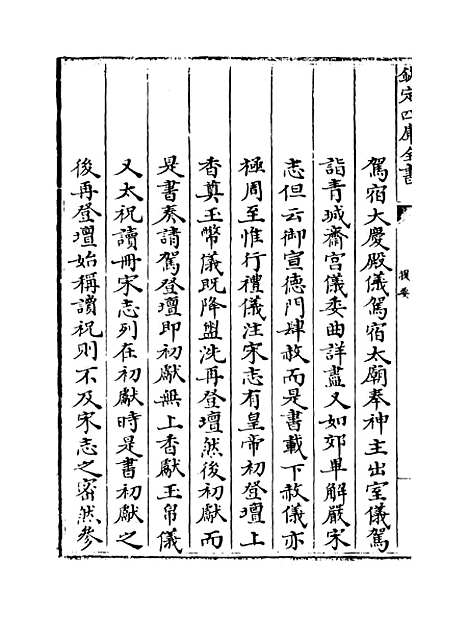 欽定四庫全書
提要
駕宿大慶殿儀駕宿太廟奉神主出室儀駕
詣青城齋宮儀委曲詳盡又如郊畢解嚴宋
志但云御宣德門肆赦而是書載下赦儀亦
極周至惟行禮儀注宋志有皇帝初登壇上
香奠玉幣儀既降盥洗再登壇然後初獻而
是書奏請駕登壇即初獻無上香獻玉帛儀
又太祝讀冊宋志列在初獻時是書初獻之
後再登壇始稱讀祝則不及宋志之密然參